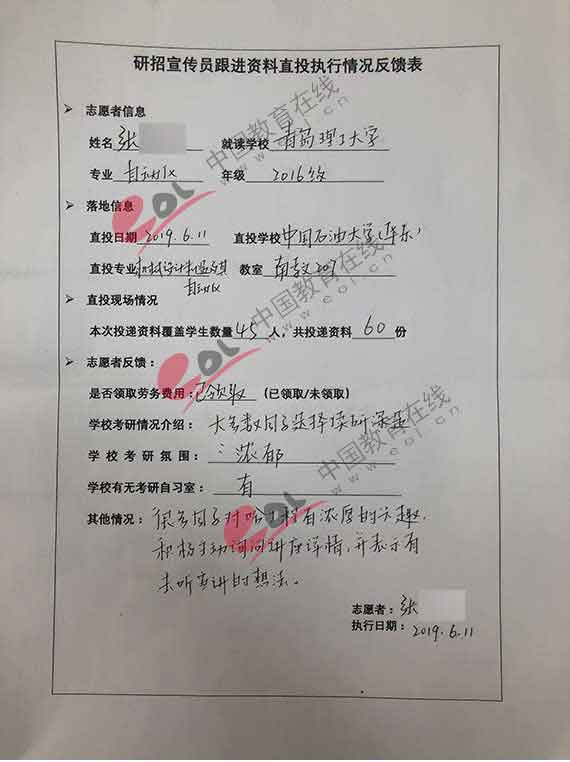 研招宣传员跟进资料直投执行情况反馈表
➢ 志愿者信息
姓名 张 就读学校 青岛理工大学
专业 自动化 年级 2016级
➢ 落地信息
直投日期 2019.6.11 直投学校 中国石油大学(华东)
直投专业 机械设计制造及其 教室 南教207
自动化
➢ 直投现场情况
本次投递资料覆盖学生数量 45 人，共投递资料 60 份
➢ 志愿者反馈：
是否领取劳务费用：已领取 (已领取/未领取)
学校考研情况介绍： 大多数同学选择读研深造
学校考研氛围： 浓郁
学校有无考研自习室： 有
其他情况： 很多同学对哈工程有浓厚的兴趣,
积极主动询问讲座详情,并表示有
去听宣讲的想法。
志愿者： 张
执行日期： 2019.6.11
eol 中国教育在线
www.eol.cn
eol 中国教育在线
www.eol.cn
eol 中国教育在线
www.eol.cn